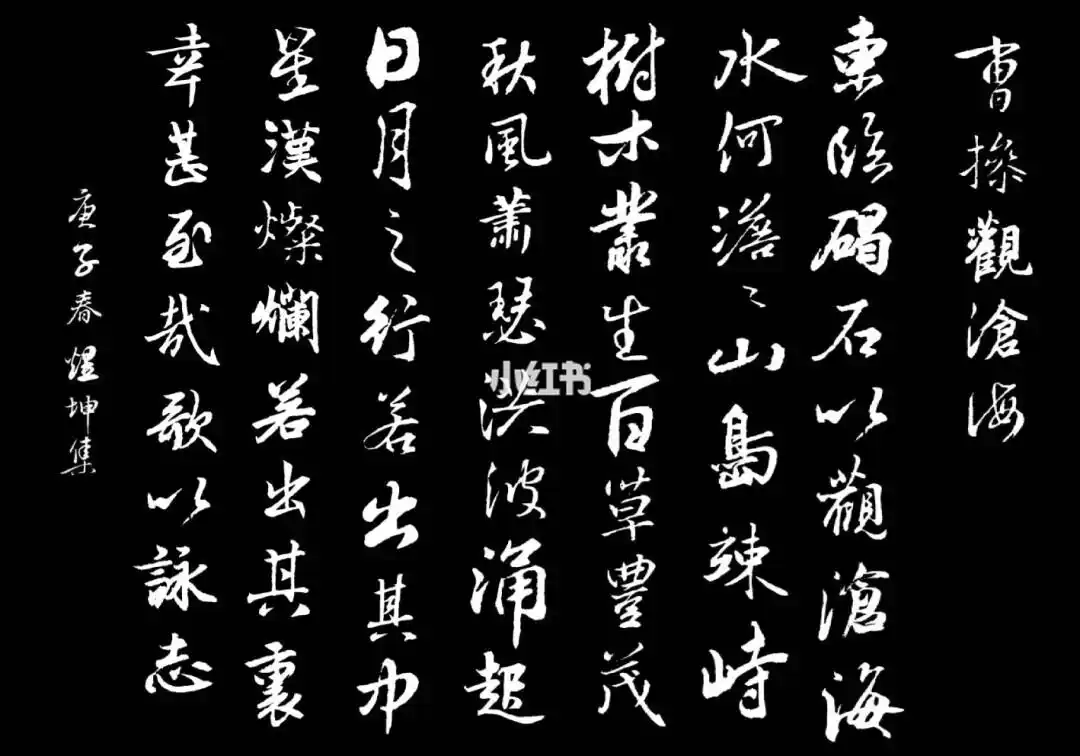 曹操觀滄海
東臨碣石以觀滄海
水何澹〻山島竦峙
樹木叢生百草豐茂
秋風蕭瑟洪波涌起
日月之行若出其中
星漢燦爛若出其裏
幸甚至哉歌以詠志
庚子春煜坤集
小红书